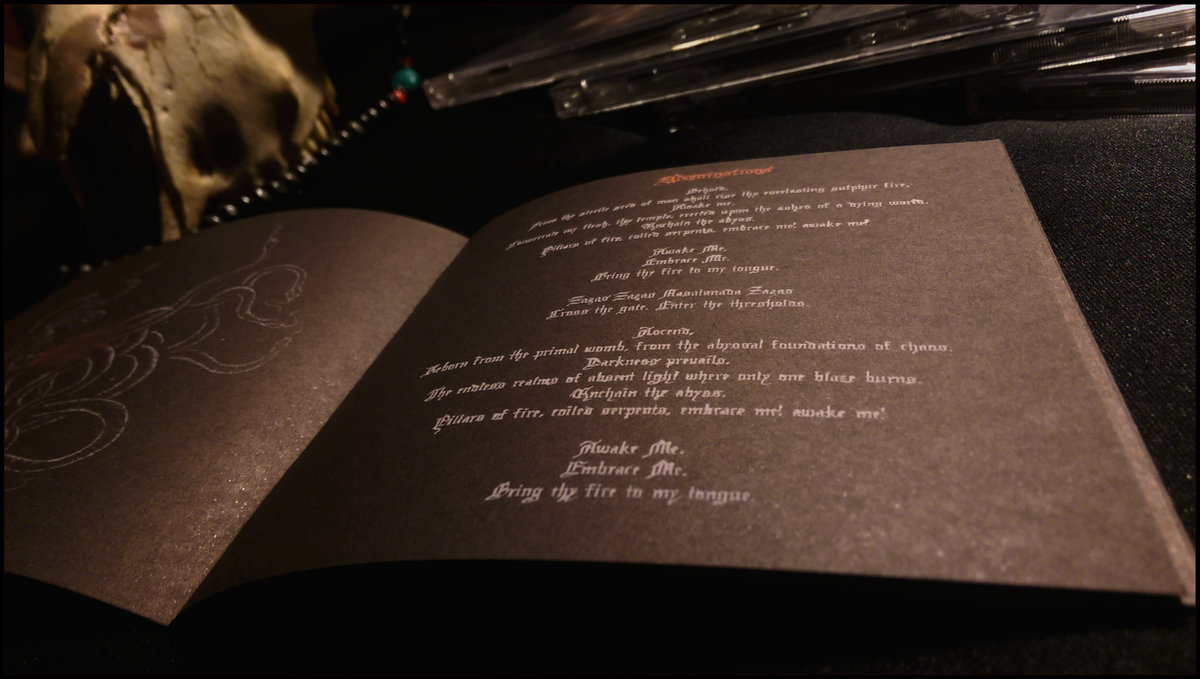 Abominations
Behold,
From the sterile seed of man shall rise the everlasting sulphur fire,
Awake me.
Consecrate my flesh, thy temple, erected upon the ashes of a dying world.
Enchain the abyss.
Pillars of fire, coiled serpents, embrace me! awake me!
Awake Me.
Embrace Me.
Bring thy fire to my tongue.
Zazas Zazas Nasatanada Zazas
Cross the gate. Enter the thresholds.
Ascend,
Reborn from the primal womb, from the abyssal foundations of chaos.
Darkness prevails,
The endless realms of absent light where only one blaze burns.
Enchain the abyss.
Pillars of fire, coiled serpents, embrace me! awake me!
Awake Me.
Embrace Me.
Bring thy fire to my tongue.